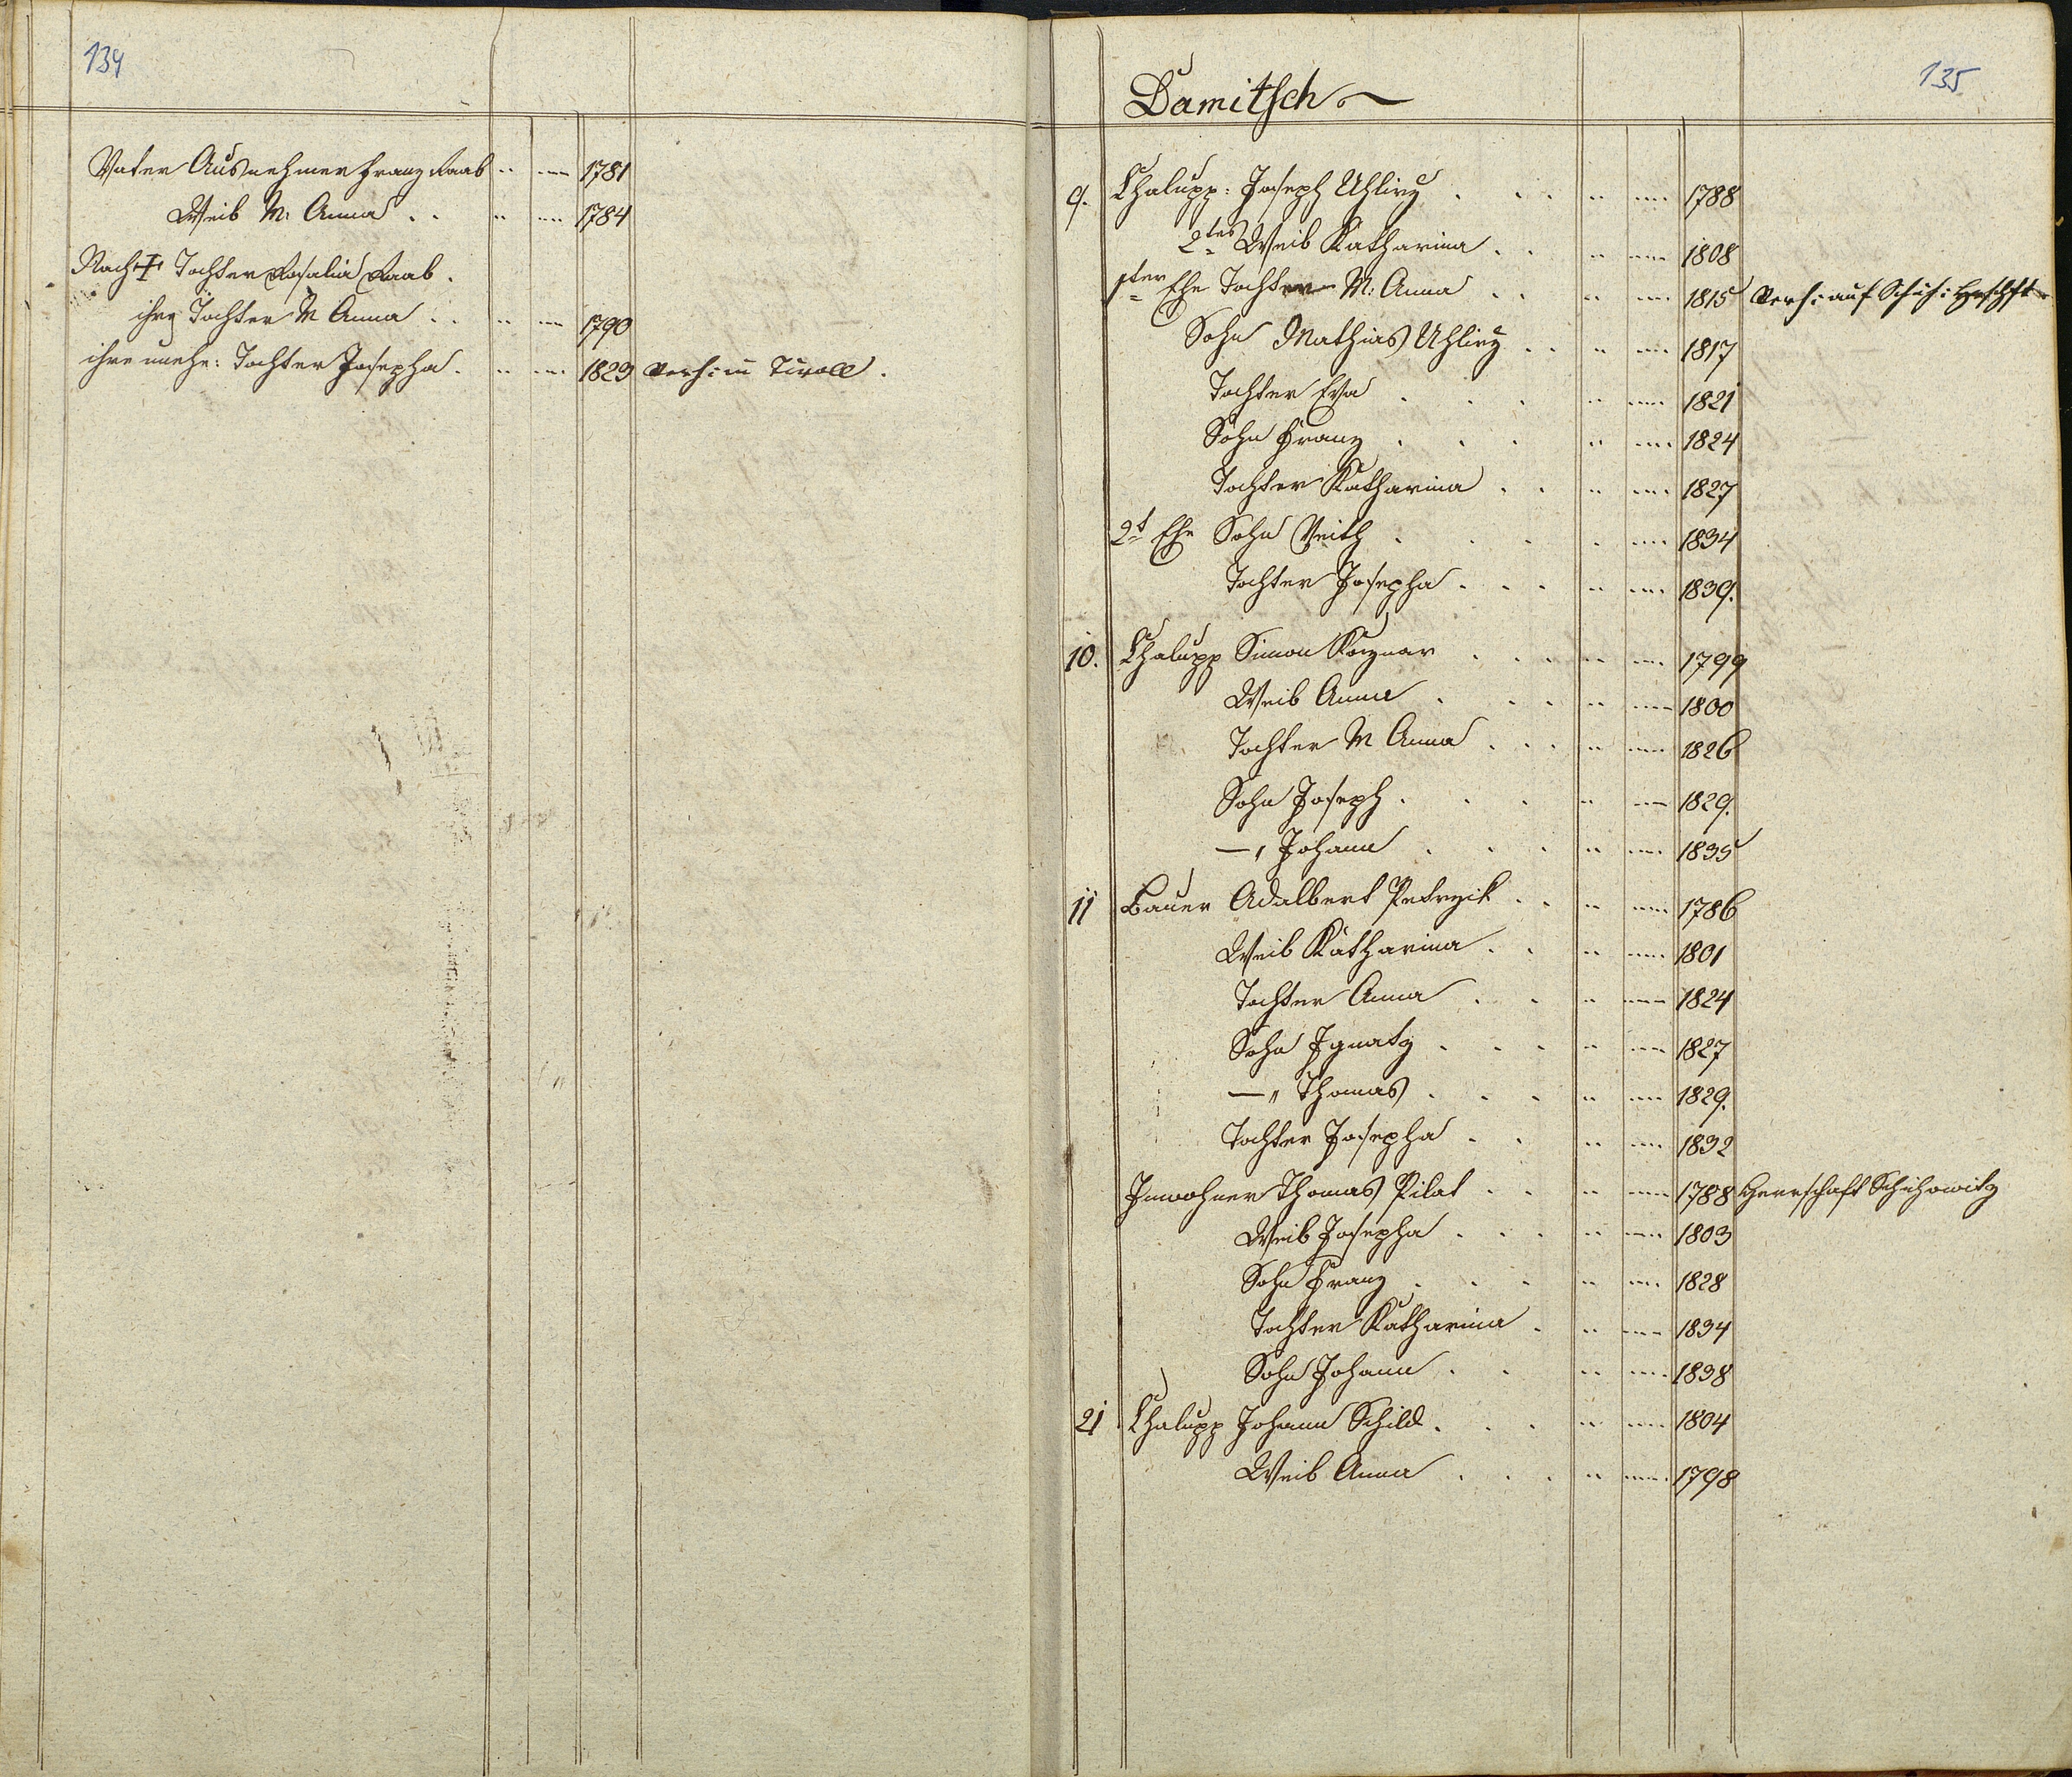 134
Vater Ausnehmer Franz Raab 1781
Weib M: Anna 1784
Nach + Tochter Rosalia Raab.
ihre Tochter M Anna 1790
ihre unehe: Tochter Josepha 1829 Verh: in Tiroll.
135
Damitsch
9. Chalupp: Joseph Uhlirz 1788
2tes Weib Katharina 1808
1ter Ehe Tochter M: Anna 1815 Verh: auf Schich: Hrschft
Sohn Mathias Uhlirz 1817
Tochter Eva 1821
Sohn Franz 1824
Tochter Katharina 1827
2t Ehe Sohn Veith 1834
Tochter Josepha 1839.
10. Chalupp Simon 1799
Weib Anna 1800
Tochter M Anna 1826
Sohn Joseph 1829.
—„ Johann 1835
11 Bauer Adalbert Petrzik 1786
Weib Katharina 1801
Tochter Anna 1824
Sohn Ignatz 1827
—„ Thomas 1829.
Tochter Josepha 1832
Inwohner Thomas Pilat 1788 Herrschaft Schichowitz
Weib Josepha 1803
Sohn Franz 1828
Tochter Katharina 1834
Sohn Johann 1838
21 Chalupp Johann Schild 1804
Weib Anna 1798